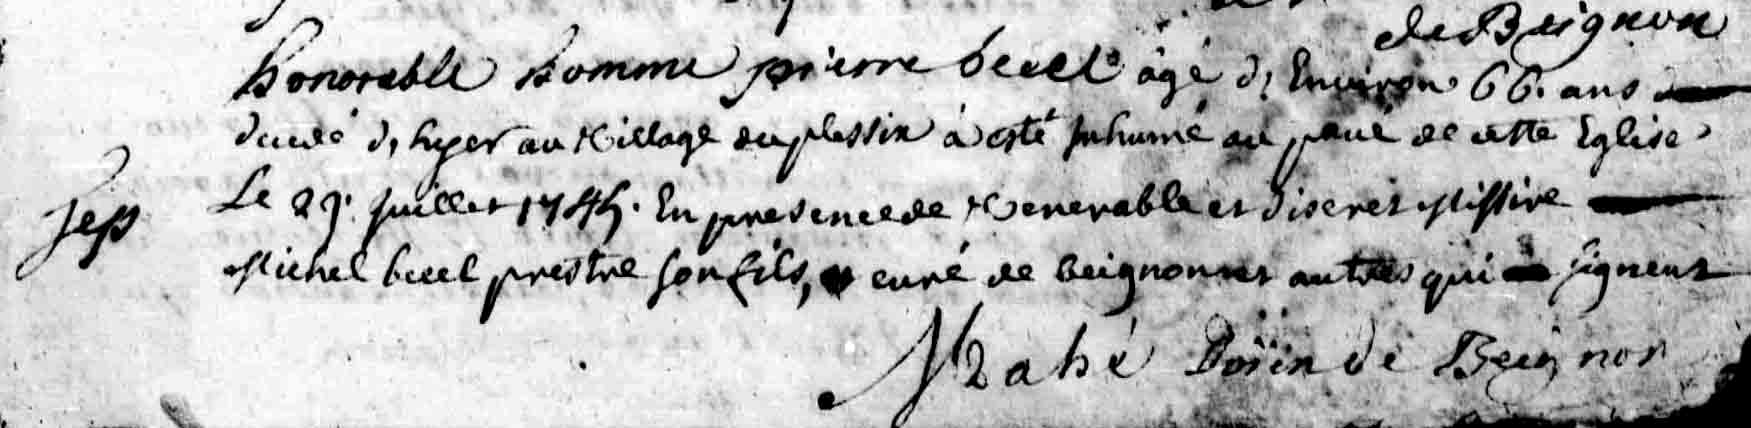 de Beignon
honorable homme pierre becel âgé d'Environ 66. ans
du village du plessix à esté Inhumé au pavé de cette Eglise
Le Juillet En presence de Venerable et discret Missire
Michel becel prestre son fils, curé de beignon et autres qui signent
Mahé de Beignon